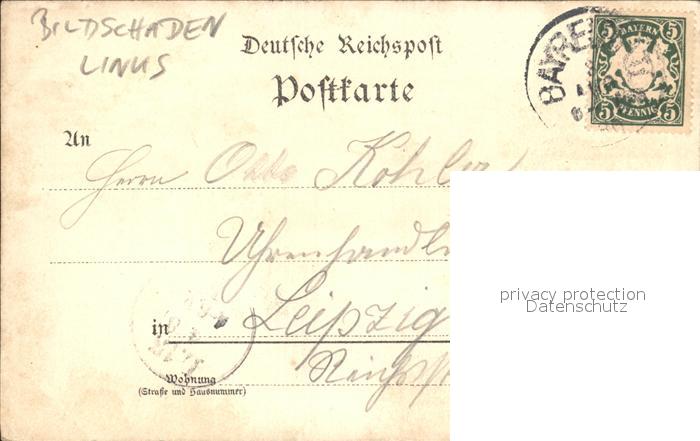 BILDSCHADEN
LINKS
Deutsche Reichspost
Postkarte
BAYRE
BAYERN
5 5
PFENNIG
5 5
An
Herrn Otto Köhler
Uhrenhandl
in Leipzig
Wohnung
(Straße und Hausnummer)
privacy protection
Datenschutz